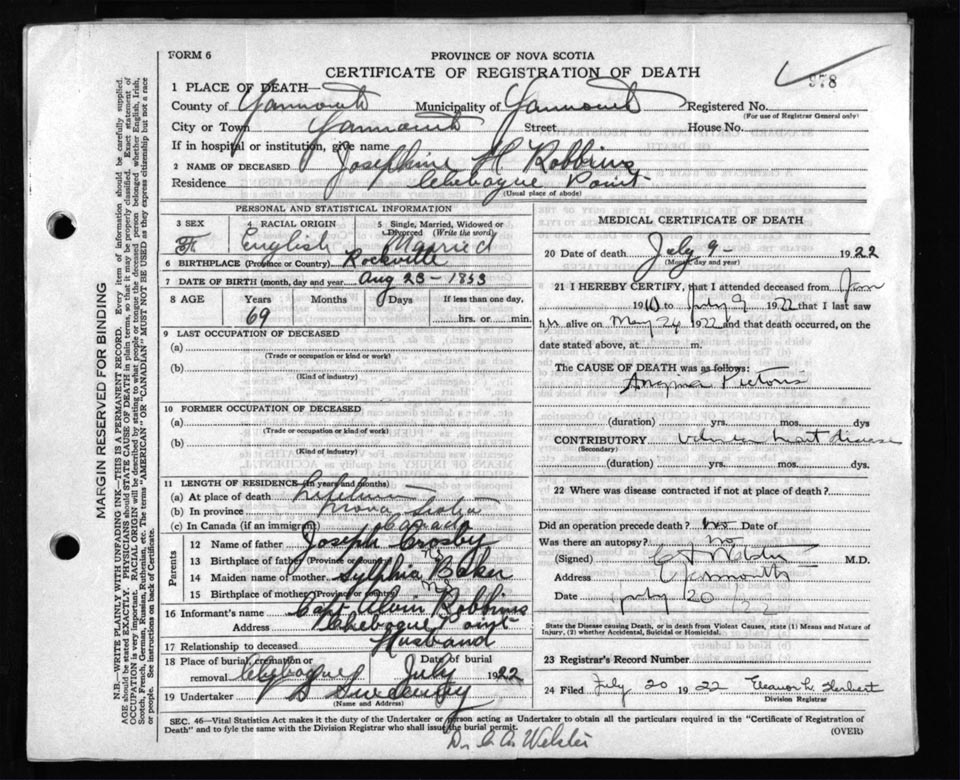 FORM 6
PROVINCE OF NOVA SCOTIA
CERTIFICATE OF REGISTRATION OF DEATH
978
1 PLACE OF DEATH—
County of Yarmouth Municipality of Yarmouth Registered No.
(For use of Registrar General only)
City or Town Yarmouth Street House No.
If in hospital or institution, give name
2 NAME OF DECEASED Josephine H Robbins
Residence Chebogue Point
(Usual place of abode)
PERSONAL AND STATISTICAL INFORMATION
3 SEX 4 RACIAL ORIGIN 5 Single, Married, Widowed or Divorced (Write the word)
F English Married
6 BIRTHPLACE (Province or Country) Rockville
7 DATE OF BIRTH (month, day and year) Aug 23-1853
8 AGE Years Months Days If less than one day,
69 hrs. or min.
9 LAST OCCUPATION OF DECEASED
(a)
(Trade or occupation or kind or work)
(b)
(Kind of industry)
10 FORMER OCCUPATION OF DECEASED
(a)
(Trade or occupation or kind of work)
(b)
(Kind of industry)
11 LENGTH OF RESIDENCE (in years and months)
(a) At place of death Lifetime
(b) In province Nova Scotia
(c) In Canada (if an immigrant) Canada
Parents
12 Name of father Joseph Crosby
13 Birthplace of father (Province or country) NS
14 Maiden name of mother Sylphia Baker
15 Birthplace of mother (Province or country) NS
16 Informant's name Capt Alvin Robbins
Address Chebogue Point
17 Relationship to deceased Husband
18 Place of burial, cremation or removal Chebogue Date of burial July 1922
19 Undertaker Sweeney
(Name and Address)
MEDICAL CERTIFICATE OF DEATH
20 Date of death July 9 - 1922
(Month, day and year)
21 I HEREBY CERTIFY, that I attended deceased from
19 to July 9 1922 that I last saw
h alive on May 24 1922 and that death occurred, on the
date stated above, at m.
The CAUSE OF DEATH was as follows:
Angina Pectoris
(duration) yrs. mos. dys
CONTRIBUTORY heart disease
(Secondary)
(duration) yrs. mos. dys.
22 Where was disease contracted if not at place of death?
Did an operation precede death? no Date of
Was there an autopsy? no
(Signed) M.D.
Address Yarmouth
Date July 20 / 22
State the Disease causing Death, or in death from Violent Causes, state (1) Means and Nature of
Injury, (2) whether Accidental, Suicidal or Homicidal.
23 Registrar's Record Number
24 Filed July 20 1922 Eleanor L. Herbert
Division Registrar
SEC. 46—Vital Statistics Act makes it the duty of the Undertaker or person acting as Undertaker to obtain all the particulars required in the "Certificate of Registration of
Death" and to fyle the same with the Division Registrar who shall issue the burial permit.
(OVER)
Dr. C. A. Webster
MARGIN RESERVED FOR BINDING
N.B.—WRITE PLAINLY WITH UNFADING INK—THIS IS A PERMANENT RECORD. Every item of information should be carefully supplied.
AGE should be stated EXACTLY. PHYSICIANS should STATE CAUSE OF DEATH in plain terms, so that it may be properly classified. Exact statement of
OCCUPATION is very important. RACIAL ORIGIN will be described by stating to what people or tongue the deceased person belonged whether English, Irish,
Scotch, French, German, Russian, Ruthenian, etc. The terms "AMERICAN" OR "CANADIAN" MUST NOT BE USED as they express citizenship but not a race
or people. See instructions on back of Certificate.